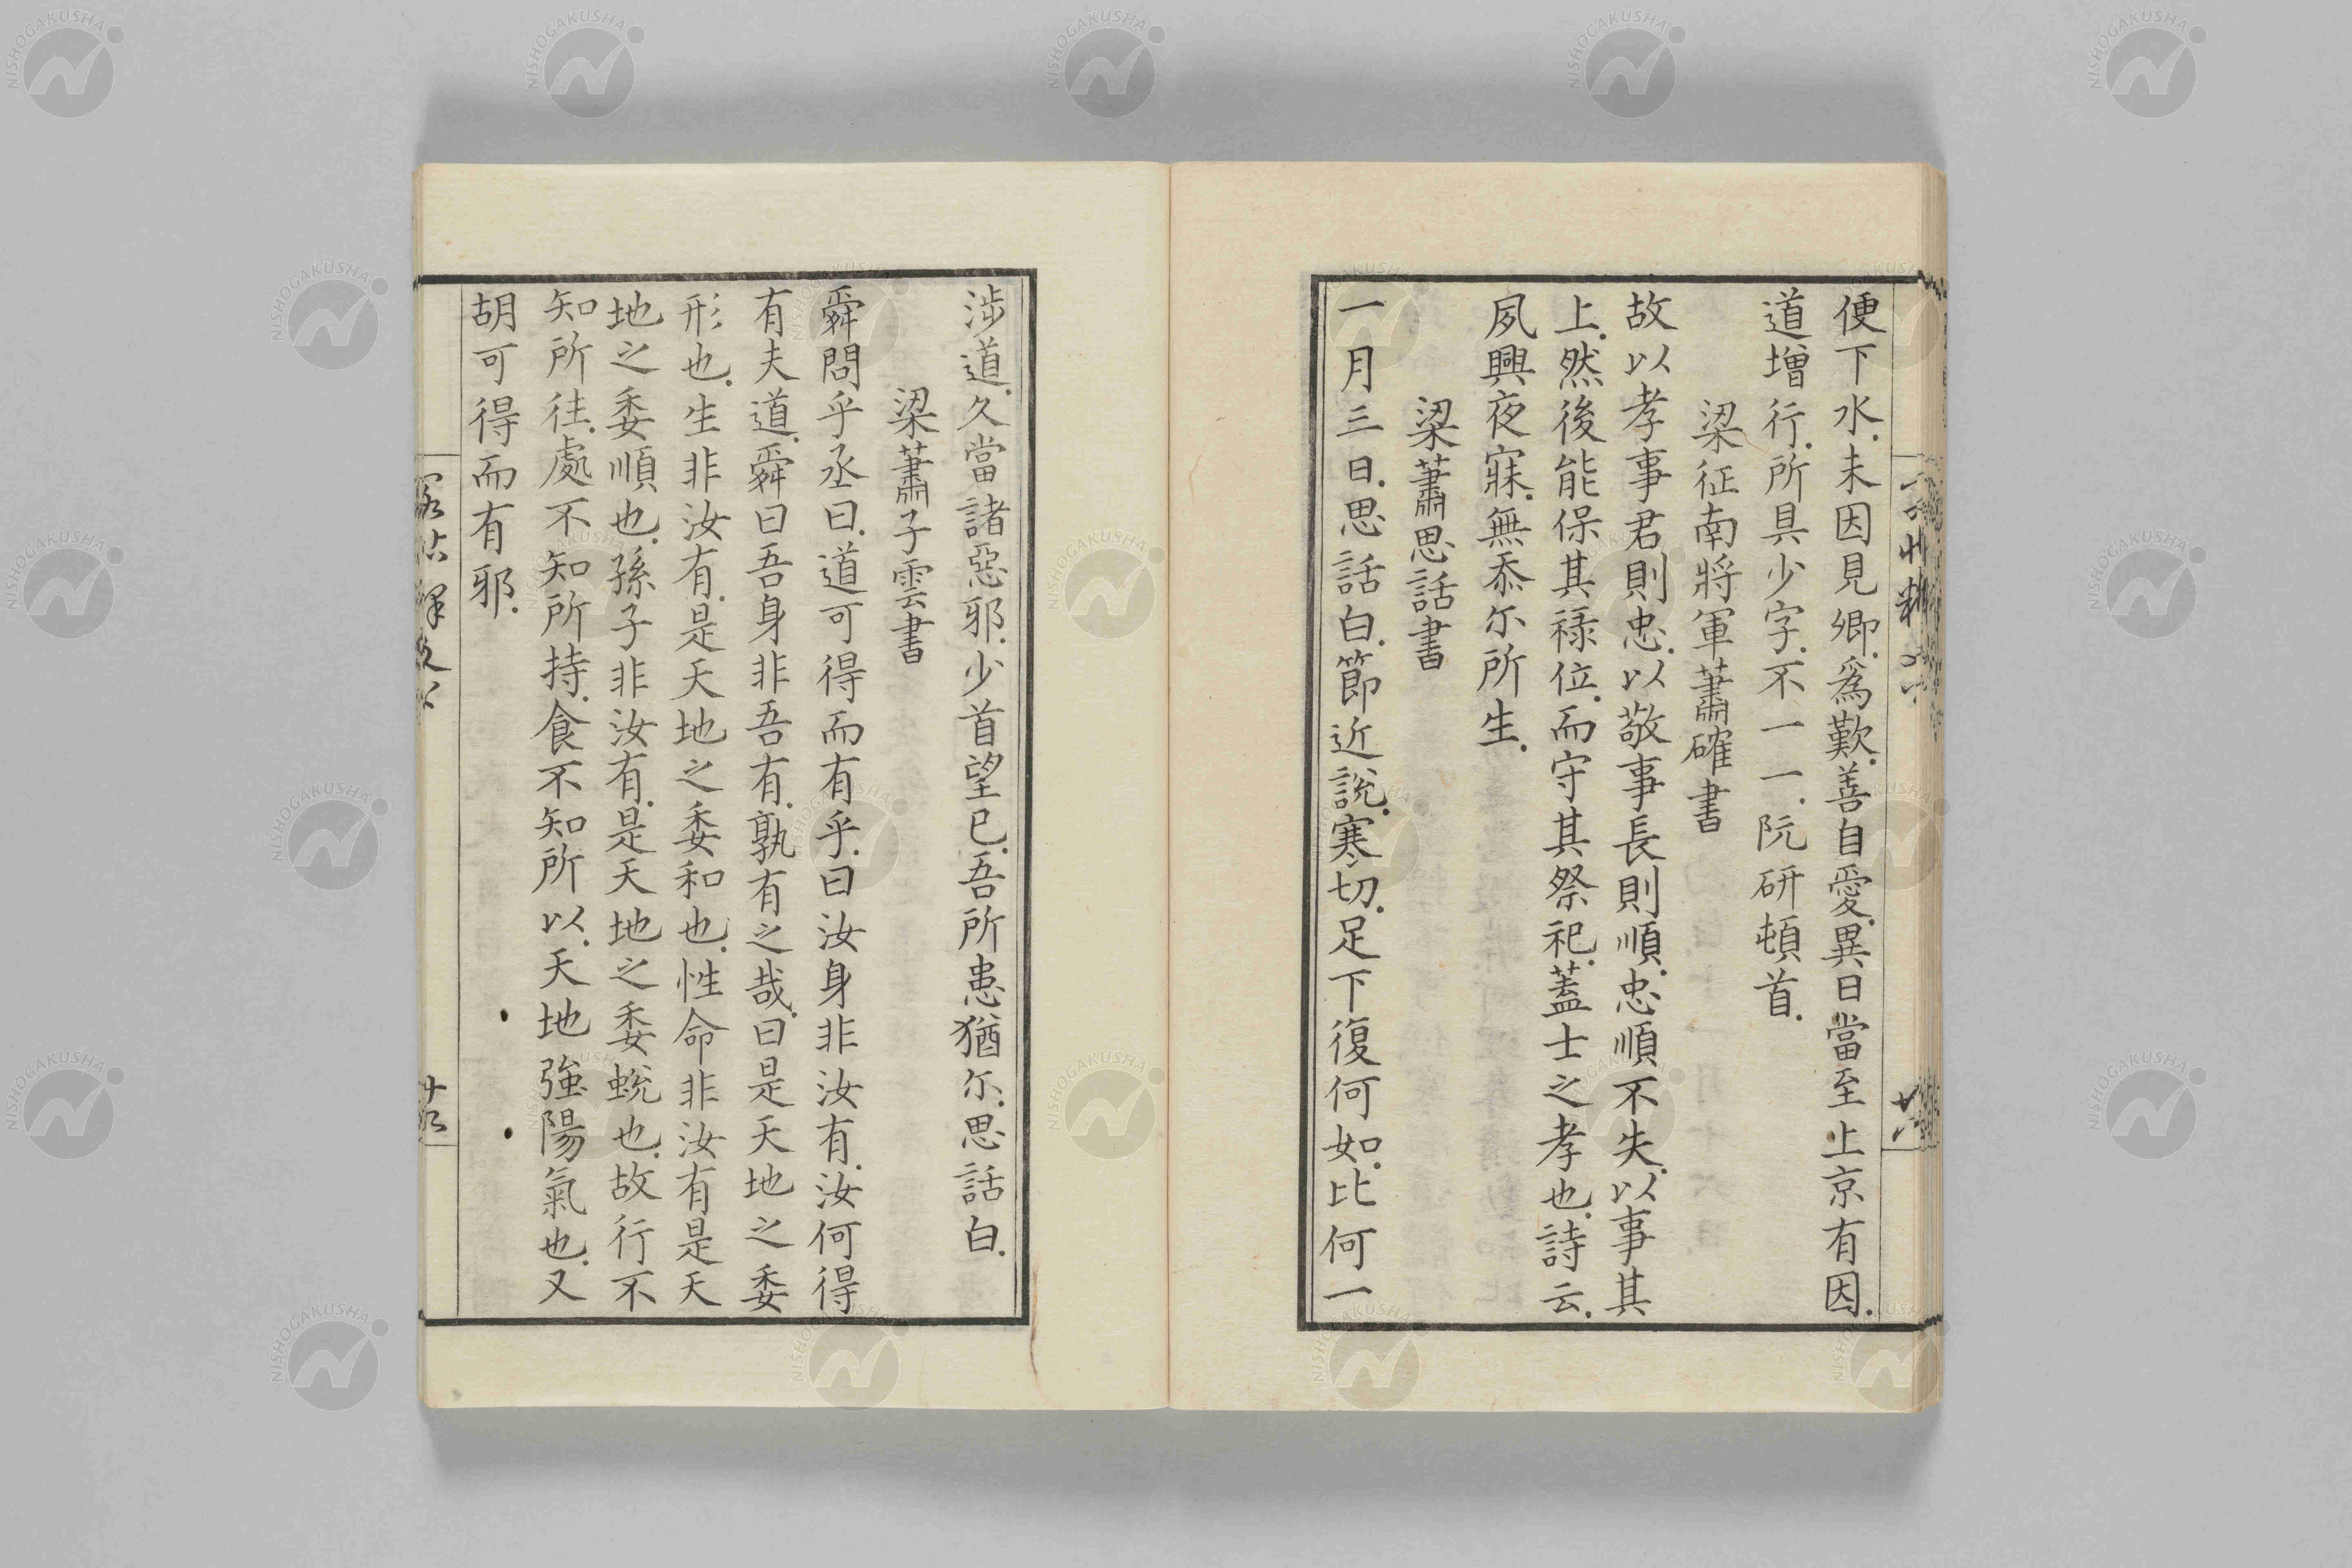 便下水.未因見卿.爲歎.善自愛.異日當至上京有因.
道增行.所具少字.不一一.阮研頓首.
梁征南將軍蕭確書
故以孝事君則忠.以敬事長則順.忠順不失.以事其
上.然後能保其祿位.而守其祭祀.蓋士之孝也.詩云.
夙興夜寐.無忝尓所生.
梁蕭思話書
一月三日.思話白.節近說.寒切.足下復何如.比何一
涉道.久當諸惡邪.少首望已.吾所患猶尓.思話白.
梁蕭子雲書
舜問乎丞曰.道可得而有乎.曰汝身非汝有.汝何得
有夫道.舜曰吾身非吾有.孰有之哉.曰是天地之委
形也.生非汝有.是天地之委和也.性命非汝有是天
地之委順也.孫子非汝有.是天地之委蛻也.故行不
知所往.處不知所持.食不知所以.天地強陽氣也.又
胡可得而有邪.
NISHOGAKUSHA